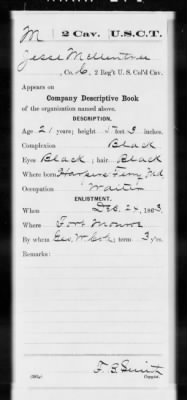 M 2 Cav. U.S.C.T.
Jesse
, Co. C, 2 Reg't U. S. Col'd Cav.
Appears on
Company Descriptive Book
of the organization named above.
DESCRIPTION.
Age 21 years; height 5 feet 3 inches.
Complexion Black
Eyes Black; hair Black
Where born Harpers Ferry Md
Occupation Waitin
ENLISTMENT.
When Dec. 24, 1863.
Where Fort Monroe
By whom Geo. W. Cole; term 3 y'rs.
Remarks:
F. B. Smith
Copyist.